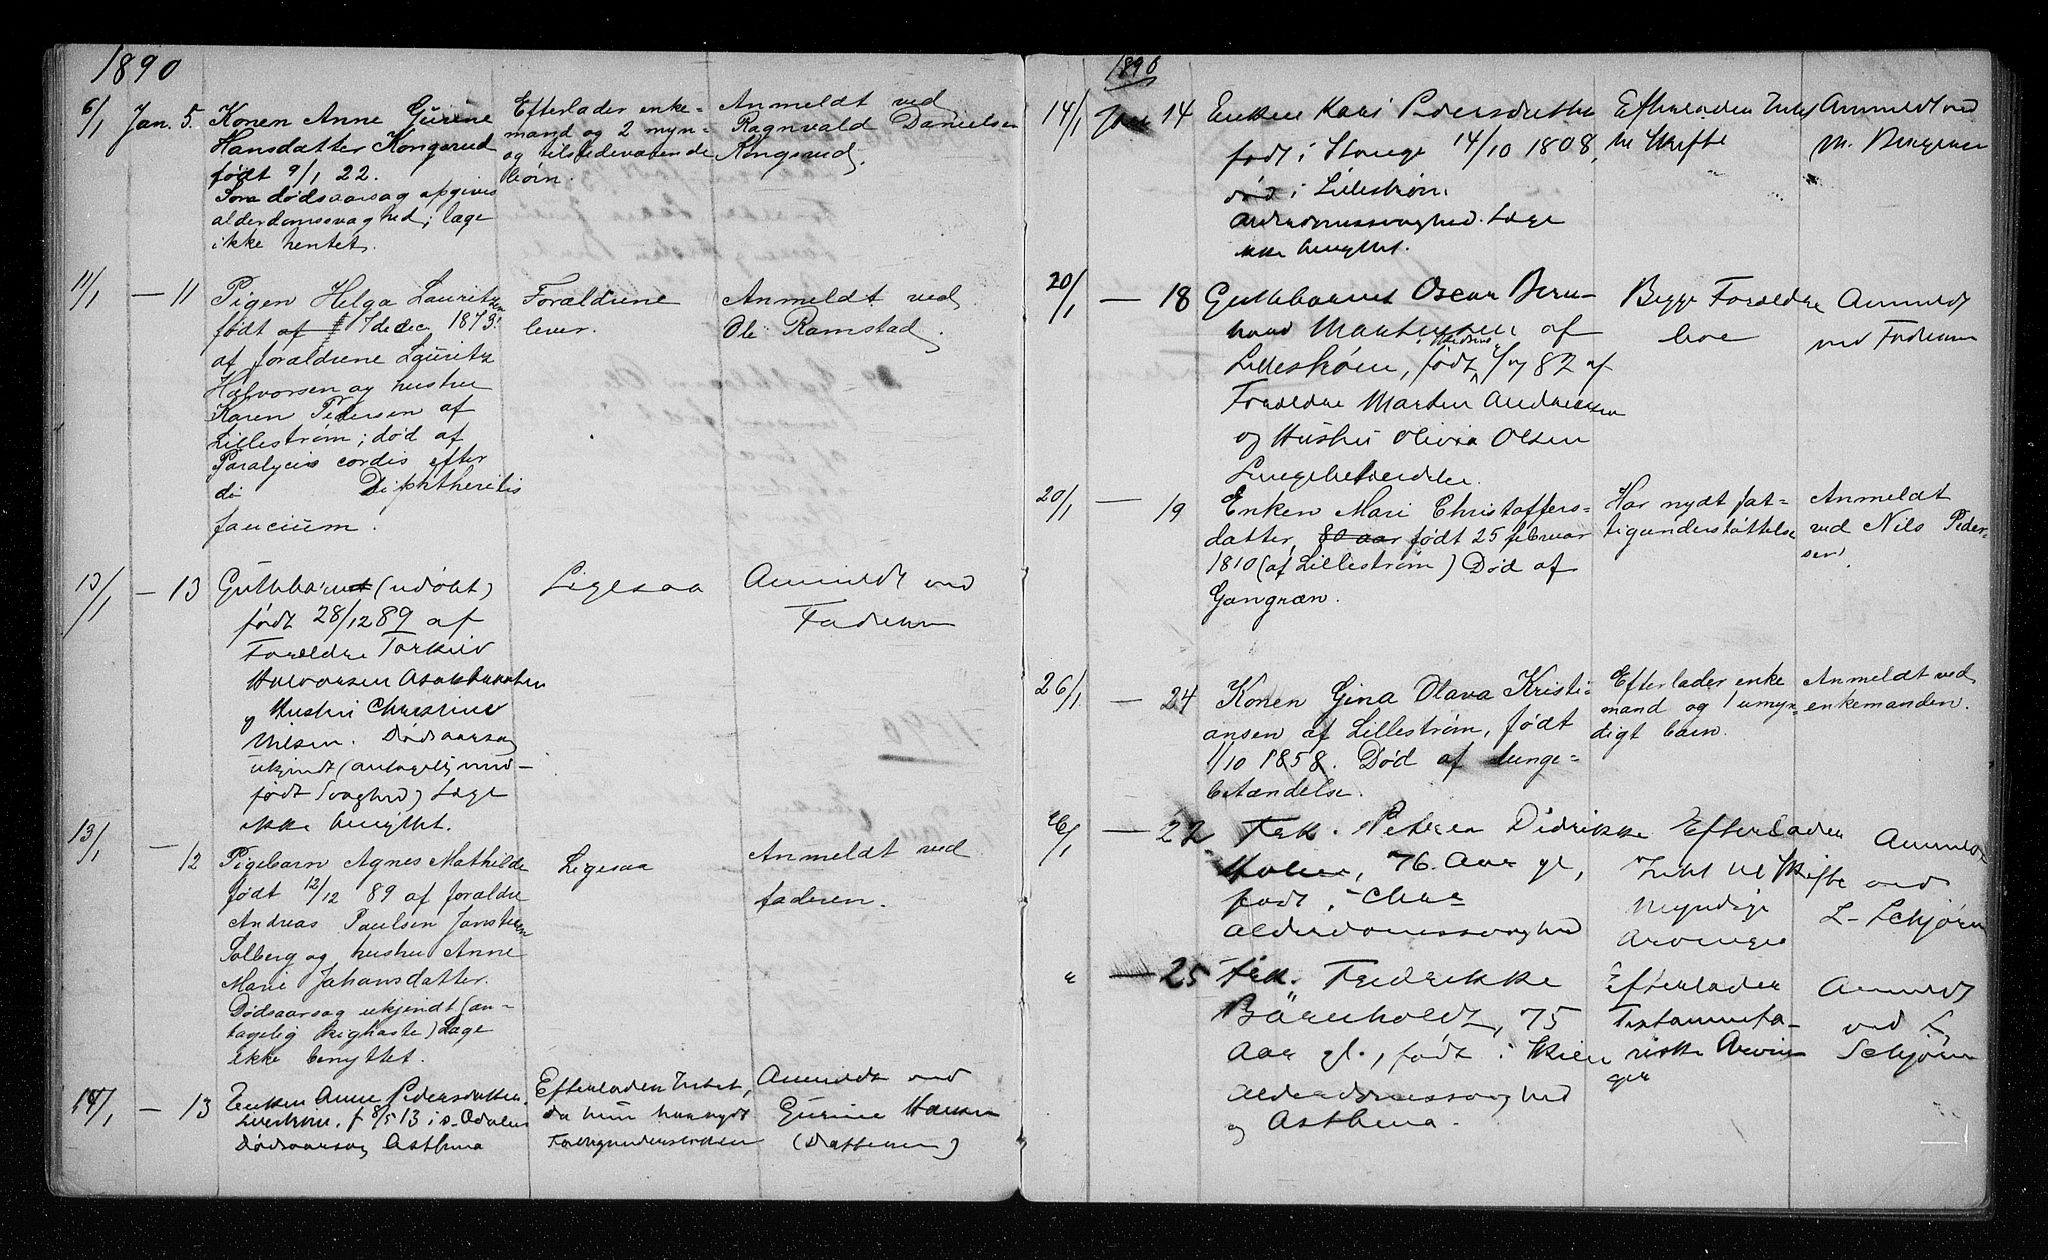 1890
6/1 Jan. 5. Konen Anne Gurine Efterlader enke= Anmeldt ved
Hansdatter Kongsrud mand og 2 myn- Ragnvald Danielsen
født 9/1 22. og tilstedeværende Kongsrud.
Som dødsaarsag opgives børn.
alderdomssvaghed; læge
ikke hentet.
11/1 — 11 Pigen Helga Lauritzen Forældrene Anmeldt ved
født 17de dec. 1873 lever. Ole Ramstad.
af forældrene Lauritz
Halvorsen og hustru
Karen Pedersen af
Lillestrøm; død af
Paralycis cordis efter
di Diphtheritis
faucium.
13/1 — 13 Guttebarnet (udøbt) Ligesaa Anmeldt ved
født 28/12 89 af Faderen
Forældre Torkild
Halvorsen
og Hustru Christine
Nilsen. Dødsaarsag
ukjendt (antagelig med-
født Svaghed) Læge
ikke benyttet.
13/1 — 12 Pigebarn Agnes Mathilde Ligesaa Anmeldt ved
født 12/12 89 af forældre faderen.
Andreas Paulsen
Solberg og hustru Anne
Marie Johansdatter.
Dødsaarsag ukjendt (an-
tagelig kighoste) Læge
ikke benyttet.
14/1 — 13 Enken Anne Pedersdatter Efterlader Intet, Anmeldt ved
Lillestrøm, f 8/5 13 i s. Odalen da hun har nydt Gurine Hansen
Dødsaarsag Asthma Fattigunderstøttelse (Datteren)
1890
14/1 Jan 14 Enken Kari Pedersdatter Efterlader Intet Anmeldt ved
født i Stange 14/10 1808, til Skifte M.
død i Lillestrøm.
Alderdomssvaghed. Læge
ikke benyttet.
20/1 — 18 Guttebarnet Oscar Bern- Begge Forældre Anmeldt
hard Martinsen af leve ved Faderen
Lillestrøm, født 82 af
Forældre Martin Andreassen
og Hustru Olivia Olsen
Lungebetændelse.
20/1 — 19 Enken Mari Christoffers= Har nydt fat- Anmeldt
datter, 80 aar født 25 februar tigunderstøttelse ved Nils Peder-
1810 (af Lillestrøm) Død af sen.
Gangræn.
26/1 — 24 Konen Gina Olava Kristi= Efterlader enke Anmeldt ved
ansen af Lillestrøm, født mand og 1 umyn= enkemanden.
1/10 1858. Død af lunge= digt barn.
betændelse.
26/1 — 22 Frk. Petrea Didrikke Efterlader Anmeldt
Holm, 76. Aar gl, Intet til Skifte ved
født i Myndige L- Schjørn
Alderdomssvaghed Arvinger
" — 25 Frk. Fredrikke Efterlader Anmeldt
Börnholdt, 75 Testamenta- ved L
Aar gl., født i Skien riske Arvin- Schjørn
Alderdomssvaghed ger
og Asthma.